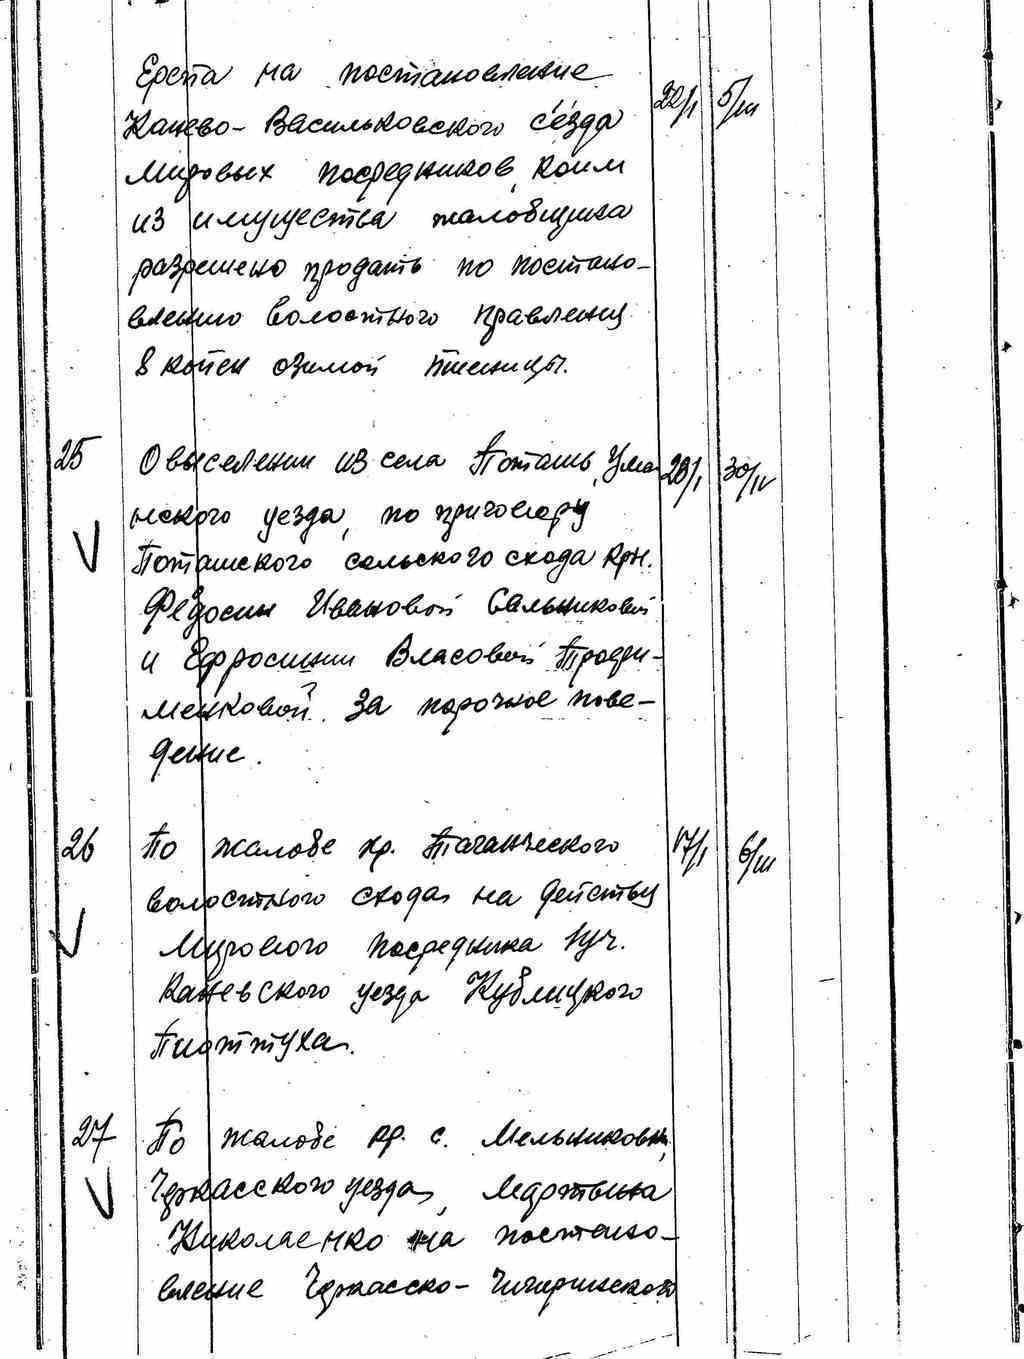 Ерста на постановление
Канево-Васильковского съезда 22/I 5/III
Мировых посредников, коим
из имущества жалобщика
разрешено продать по постано-
влению волостного правления
8 копен озимой пшеницы.
25 О выселении из села Поташ, Ума- 23/I 30/IV
нского уезда, по приговору
Поташского сельского схода крн.
Федосии Ивановой Сальниковой
и Ефросинии Власовой
менковой ? за порочное пове-
дение.
26 По жалобе кр. Таганческого 17/I 6/III
волостного схода на действия
Мирового посредника 1 уч.
Каневского уезда Кублицкого
Пиоттуха.
27 По жалобе кр. с. Мельниковки,
Черкасского уезда, Мартына
Николаенко на постано-
вление Черкасско-Чигиринского